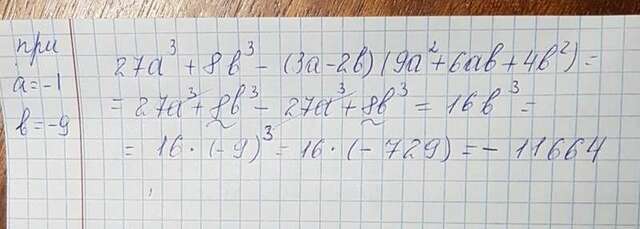 при
a=-1
b=-9
27a³ + 8b³ - (3a-2b)(9a²+6ab+4b²) =
= 27a³ + 8b³ - 27a³ + 8b³ = 16b³ =
= 16·(-9)³ = 16·(-729) = - 11664